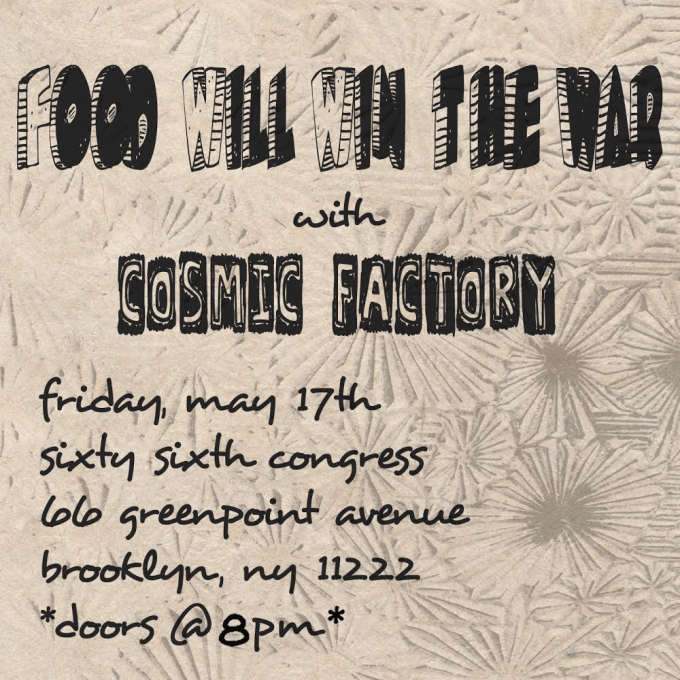 FOOD WILL WIN THE WAR
with
COSMIC FACTORY
friday, may 17th
sixty sixth congress
66 greenpoint avenue
brooklyn, ny 11222
*doors @ 8pm*